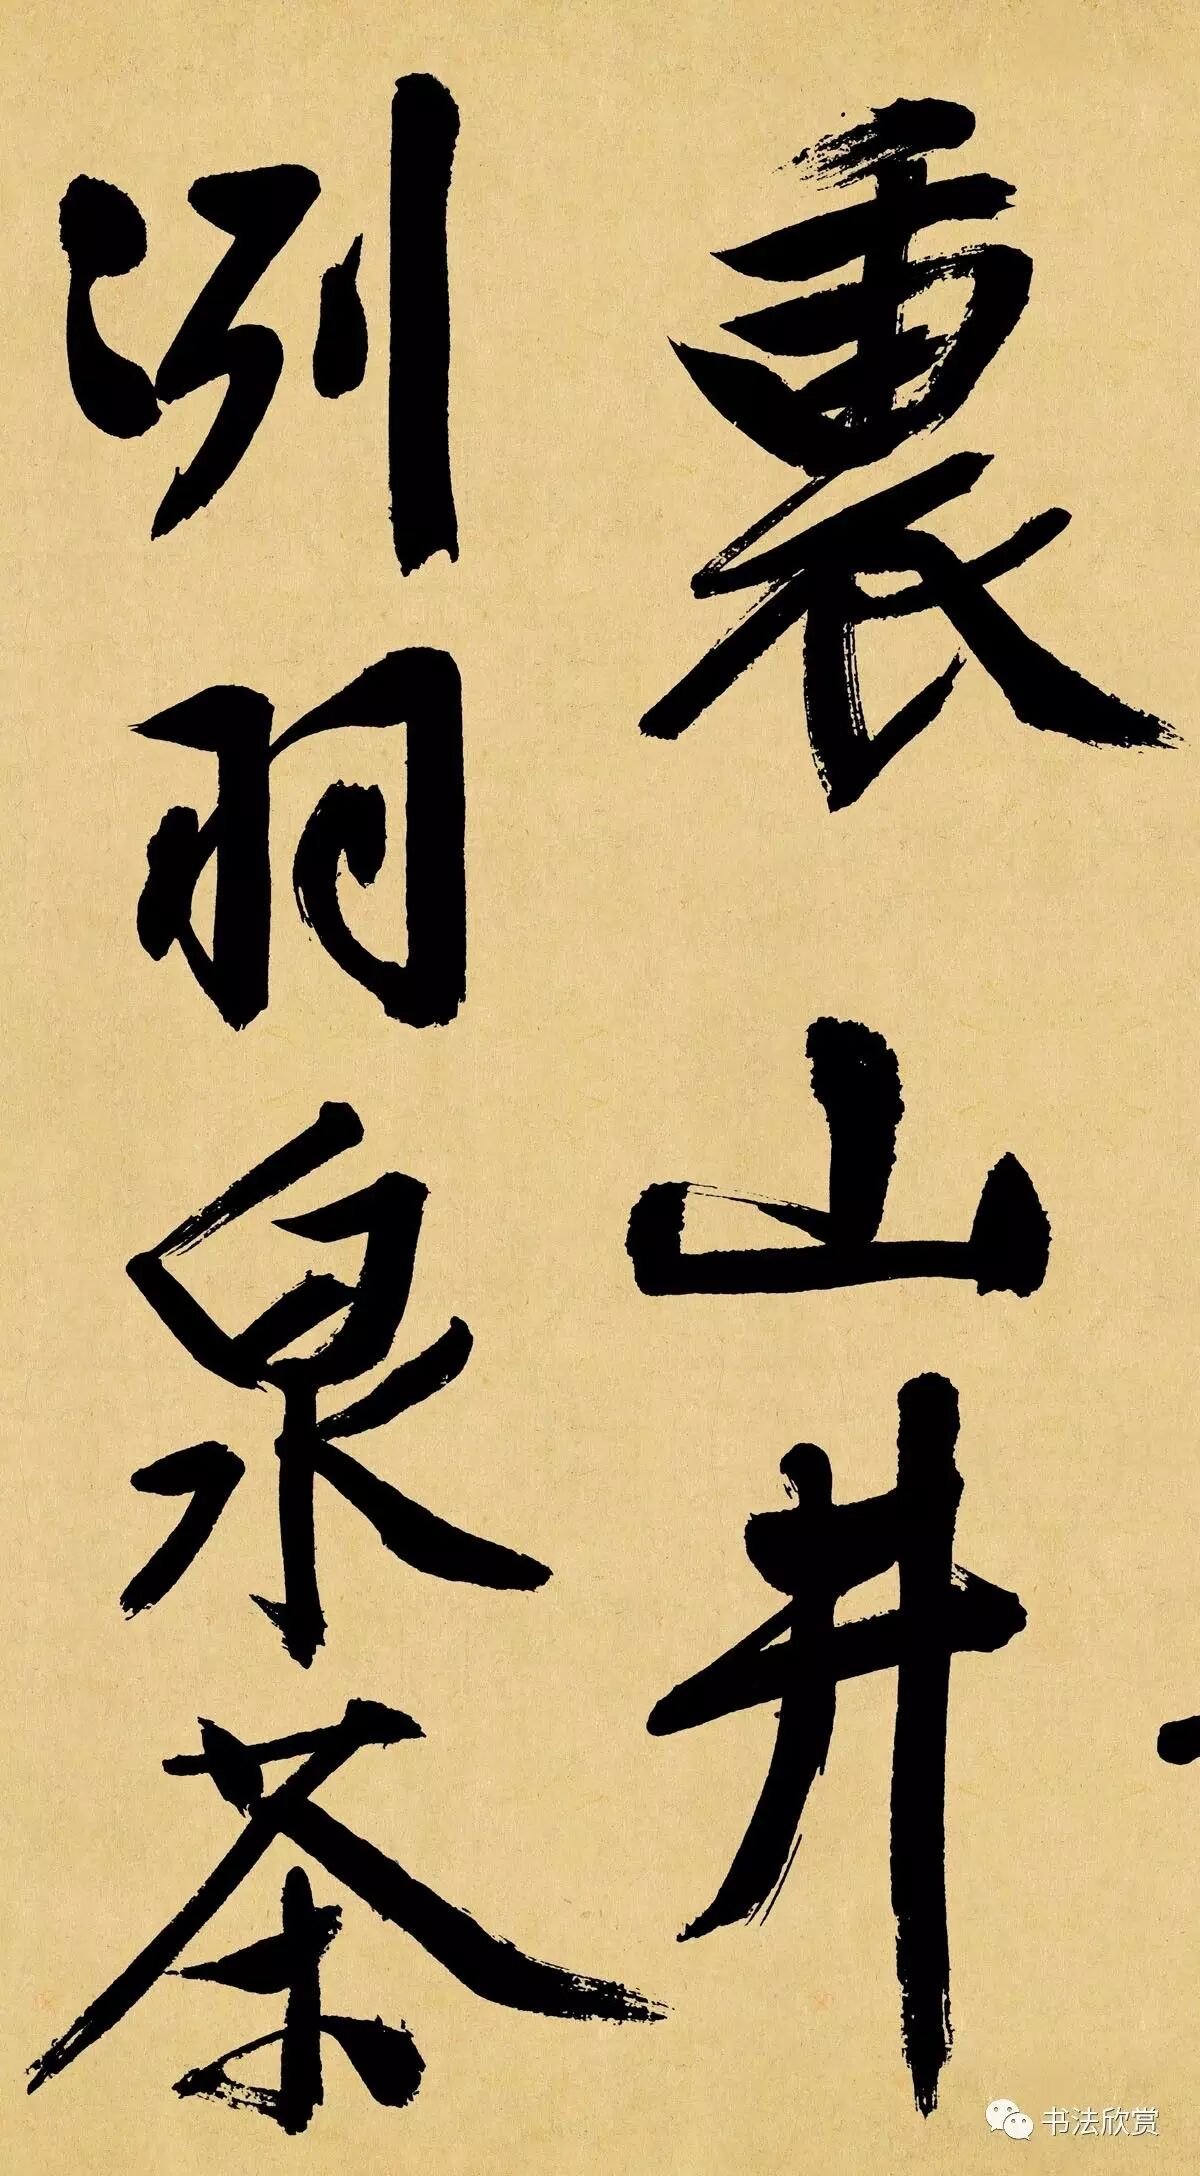 裏山井
冽羽泉茶
书法欣赏